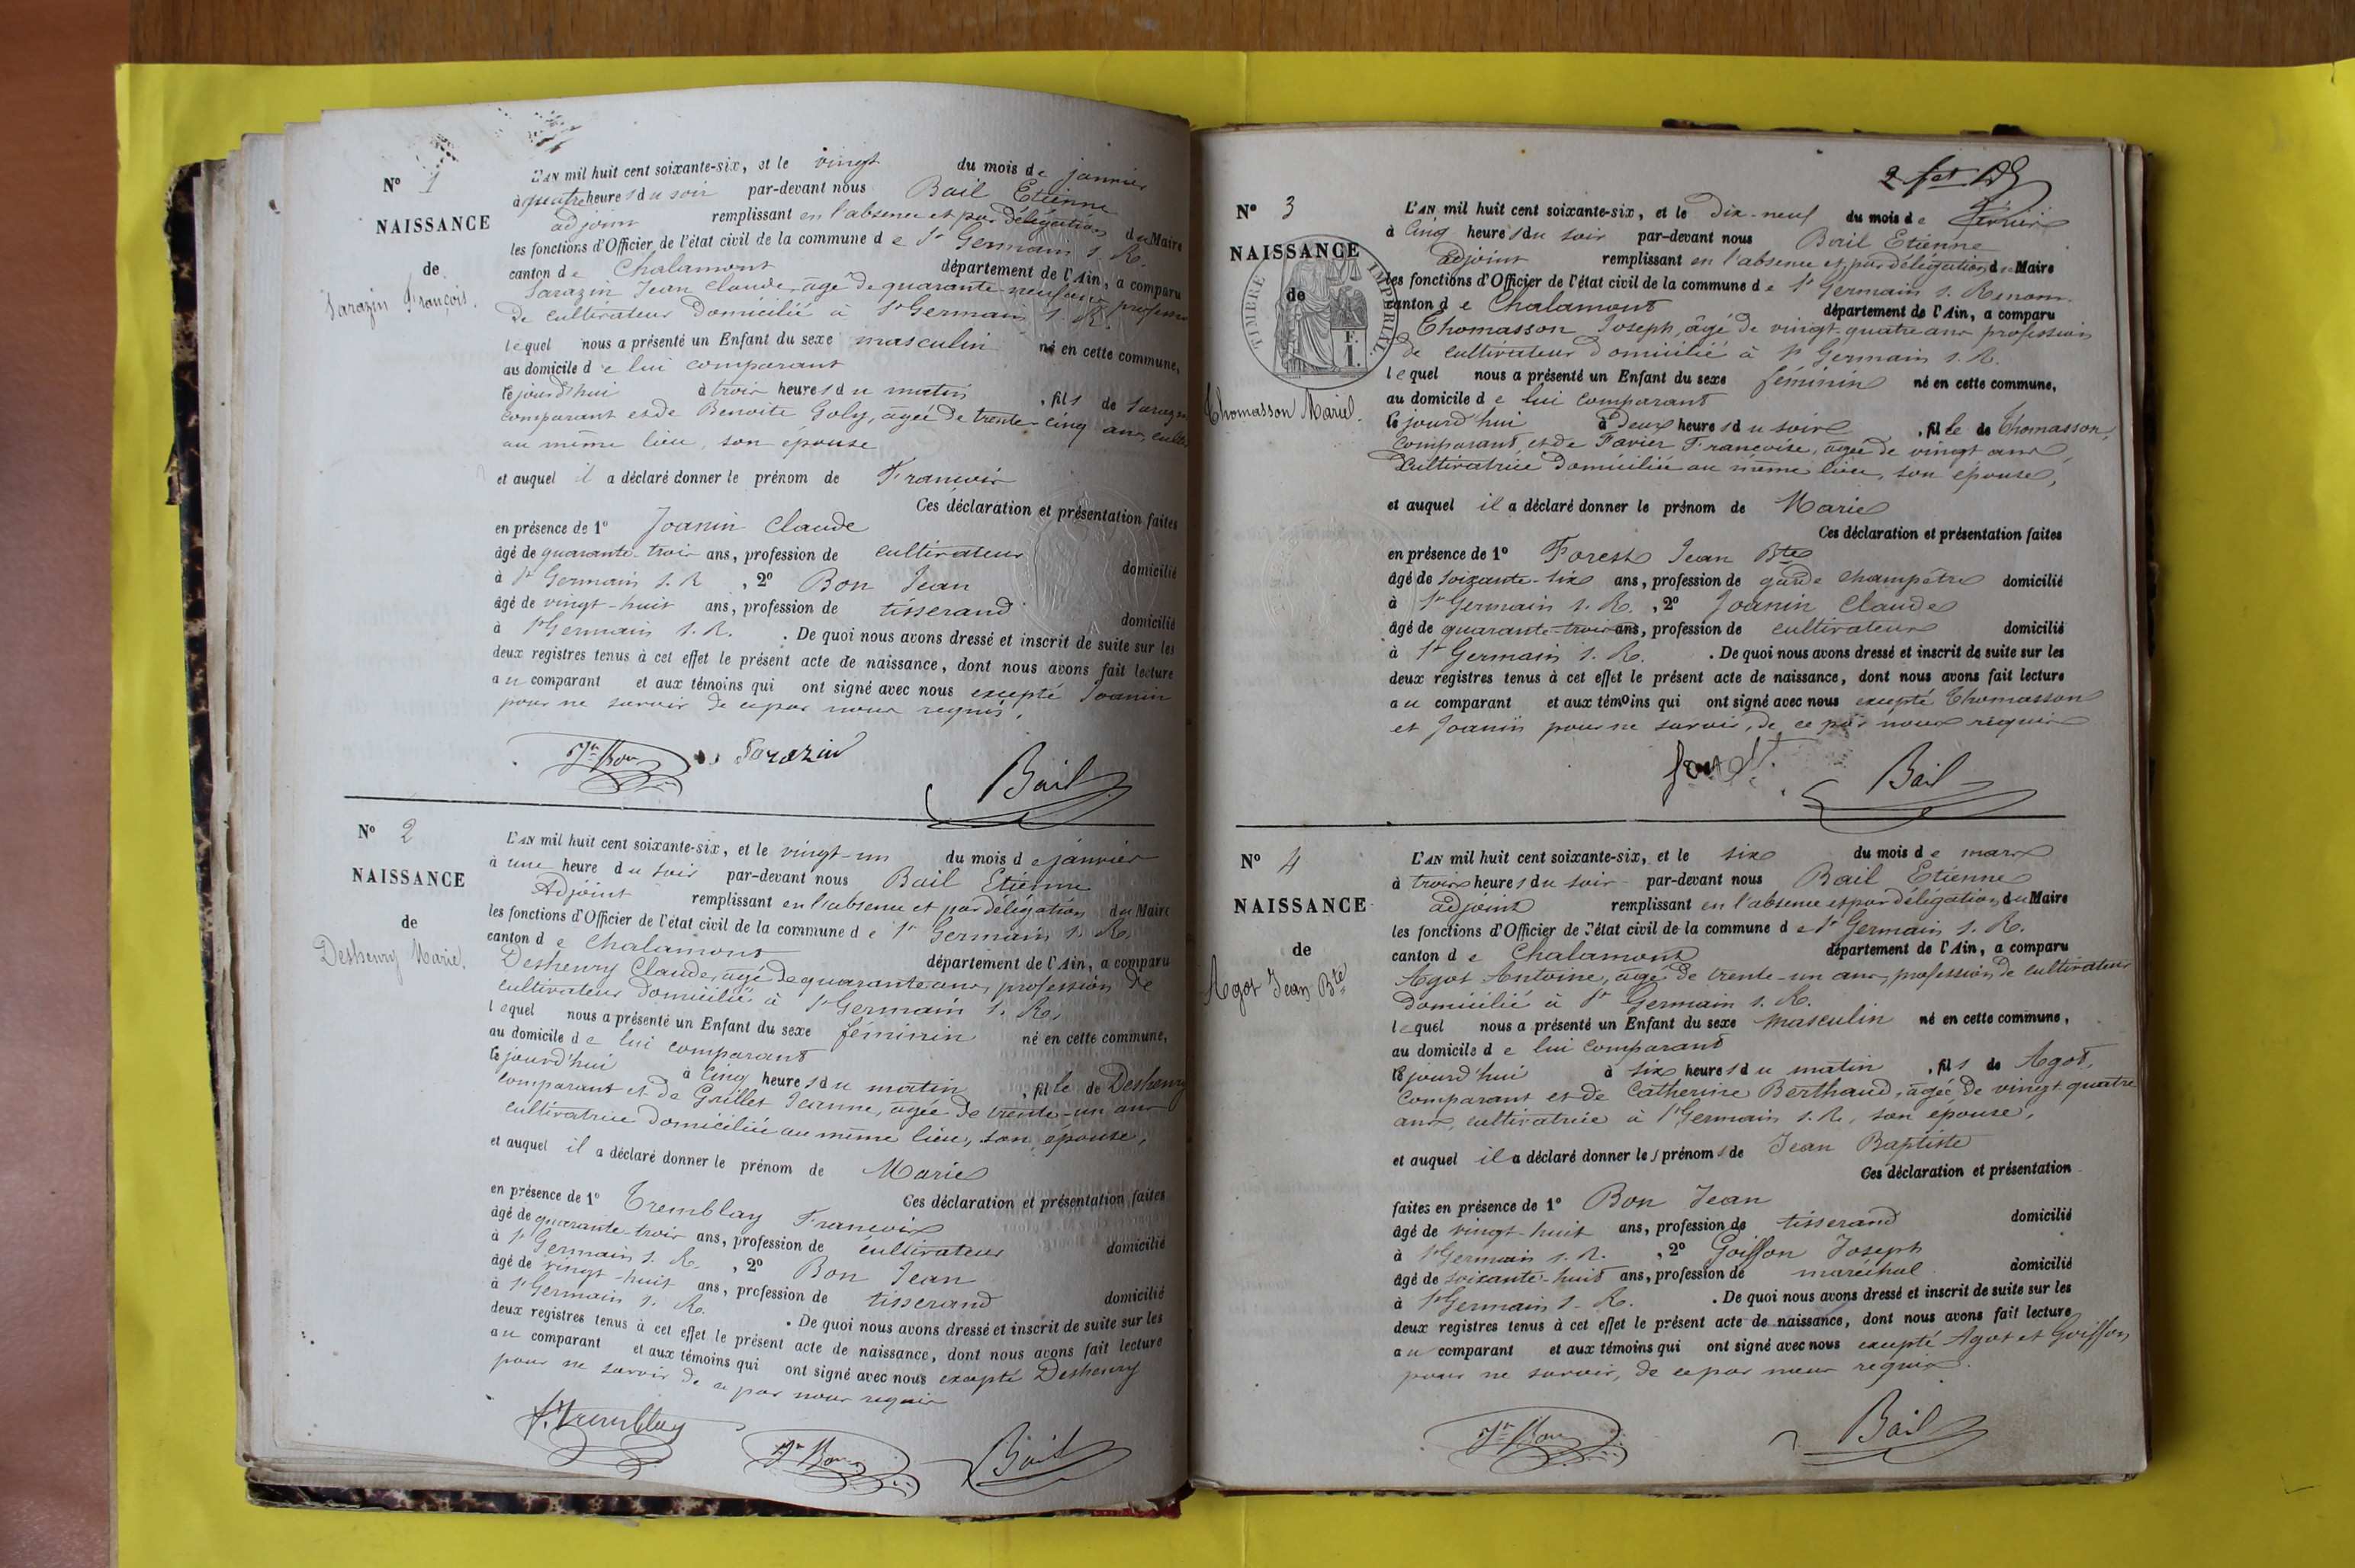 N° 1
NAISSANCE
de
Sarazin François.
L'AN mil huit cent soixante-six, et le vingt du mois de janvier
à quatre heures du soir par-devant nous Bail Etienne
adjoint remplissant en l'absence et par délégation du Maire
les fonctions d'Officier de l'état civil de la commune de St Germain s. R.
canton de Chalamont département de l'Ain, a comparu
Sarazin Jean Claude, âgé de quarante-neuf ans, profession
de cultivateur domicilié à St Germain s. R.
lequel nous a présenté un Enfant du sexe masculin né en cette commune,
au domicile de lui comparant
cejourd'hui à trois heures du matin, fils de Sarazin
comparant et de Benoite Goly, âgée de trente-cinq ans, cultiv
au même lieu, son épouse
et auquel il a déclaré donner le prénom de François
Ces déclaration et présentation faites
en présence de 1° Joanin Claude
âgé de quarante-trois ans, profession de cultivateur domicilié
à St Germain s. R, 2° Bon Jean
âgé de vingt-huit ans, profession de tisserand domicilié
à St Germain s. R. . De quoi nous avons dressé et inscrit de suite sur les
deux registres tenus à cet effet le présent acte de naissance, dont nous avons fait lecture
au comparant et aux témoins qui ont signé avec nous excepté Joanin
pour ne savoir de ce par nous requis.
Jn Bon Sarazin Bail
N° 2
NAISSANCE
de
Deshenry Marie.
L'AN mil huit cent soixante-six, et le vingt-un du mois de janvier
à une heure du soir par-devant nous Bail Etienne
Adjoint remplissant en l'absence et par délégation du Maire
les fonctions d'Officier de l'état civil de la commune de St Germain s. R.
canton de Chalamont département de l'Ain, a comparu
Deshenry Claude, âgé de quarante ans, profession de
cultivateur domicilié à St Germain s. R.
lequel nous a présenté un Enfant du sexe féminin né en cette commune,
au domicile de lui comparant
cejourd'hui à cinq heures du matin, fille de Deshenry
comparant et de Grillet Jeanne, âgée de trente-un ans
cultivatrice domiciliée au même lieu, son épouse,
et auquel il a déclaré donner le prénom de Marie
Ces déclaration et présentation faites
en présence de 1° Tremblay François
âgé de quarante-trois ans, profession de cultivateur domicilié
à St Germain s. R., 2° Bon Jean
âgé de vingt-huit ans, profession de tisserand domicilié
à St Germain s. R. . De quoi nous avons dressé et inscrit de suite sur les
deux registres tenus à cet effet le présent acte de naissance, dont nous avons fait lecture
au comparant et aux témoins qui ont signé avec nous excepté Deshenry
pour ne savoir de ce par nous requis
f. Tremblay Jn Bon Bail
2
N° 3
NAISSANCE
de
TIMBRE IMPERIAL.
F. 1.
Thomasson Marie.
L'AN mil huit cent soixante-six, et le dix-neuf du mois de février
à cinq heures du soir par-devant nous Bail Etienne
adjoint remplissant en l'absence et par délégation du Maire
les fonctions d'Officier de l'état civil de la commune de St Germain s. Renom.
canton de Chalamont département de l'Ain, a comparu
Thomasson Joseph, âgé de vingt-quatre ans profession
de cultivateur domicilié à St Germain s. R.
lequel nous a présenté un Enfant du sexe féminin né en cette commune,
au domicile de lui comparant
cejourd'hui à deux heures du soir, fille de Thomasson,
comparant, et de Favier Françoise, âgée de vingt ans,
cultivatrice domiciliée au même lieu, son épouse,
et auquel il a déclaré donner le prénom de Marie
Ces déclaration et présentation faites
en présence de 1° Forest Jean Bte
âgé de soixante-six ans, profession de garde champêtre domicilié
à St Germain s. R., 2° Joanin Claude
âgé de quarante-trois ans, profession de cultivateur domicilié
à St Germain s. R. . De quoi nous avons dressé et inscrit de suite sur les
deux registres tenus à cet effet le présent acte de naissance, dont nous avons fait lecture
au comparant et aux témoins qui ont signé avec nous excepté Thomasson
et Joanin pour ne savoir, de ce par nous requis
Bail
N° 4
NAISSANCE
de
Agot Jean Bte
L'AN mil huit cent soixante-six, et le six du mois de mars
à trois heures du soir par-devant nous Bail Etienne
adjoint remplissant en l'absence et par délégation du Maire
les fonctions d'Officier de l'état civil de la commune de St Germain s. R.
canton de Chalamont département de l'Ain, a comparu
Agot Antoine, âgé de trente-un ans, profession de cultivateur
domicilié à St Germain s. R.
lequel nous a présenté un Enfant du sexe masculin né en cette commune,
au domicile de lui comparant
cejourd'hui à six heures du matin, fils de Agot,
comparant et de Catherine Berthaud, âgée de vingt quatre
ans, cultivatrice à St Germain s. R., son épouse,
et auquel il a déclaré donner les prénoms de Jean Baptiste
Ces déclaration et présentation
faites en présence de 1° Bon Jean
âgé de vingt-huit ans, profession de tisserand domicilié
à St Germain s. R., 2° Goiffon Joseph
âgé de soixante-huit ans, profession de maréchal domicilié
à St Germain s. R. . De quoi nous avons dressé et inscrit de suite sur les
deux registres tenus à cet effet le présent acte de naissance, dont nous avons fait lecture
au comparant et aux témoins qui ont signé avec nous excepté Agot et Goiffon
pour ne savoir, de ce par nous requis.
Jn Bon Bail